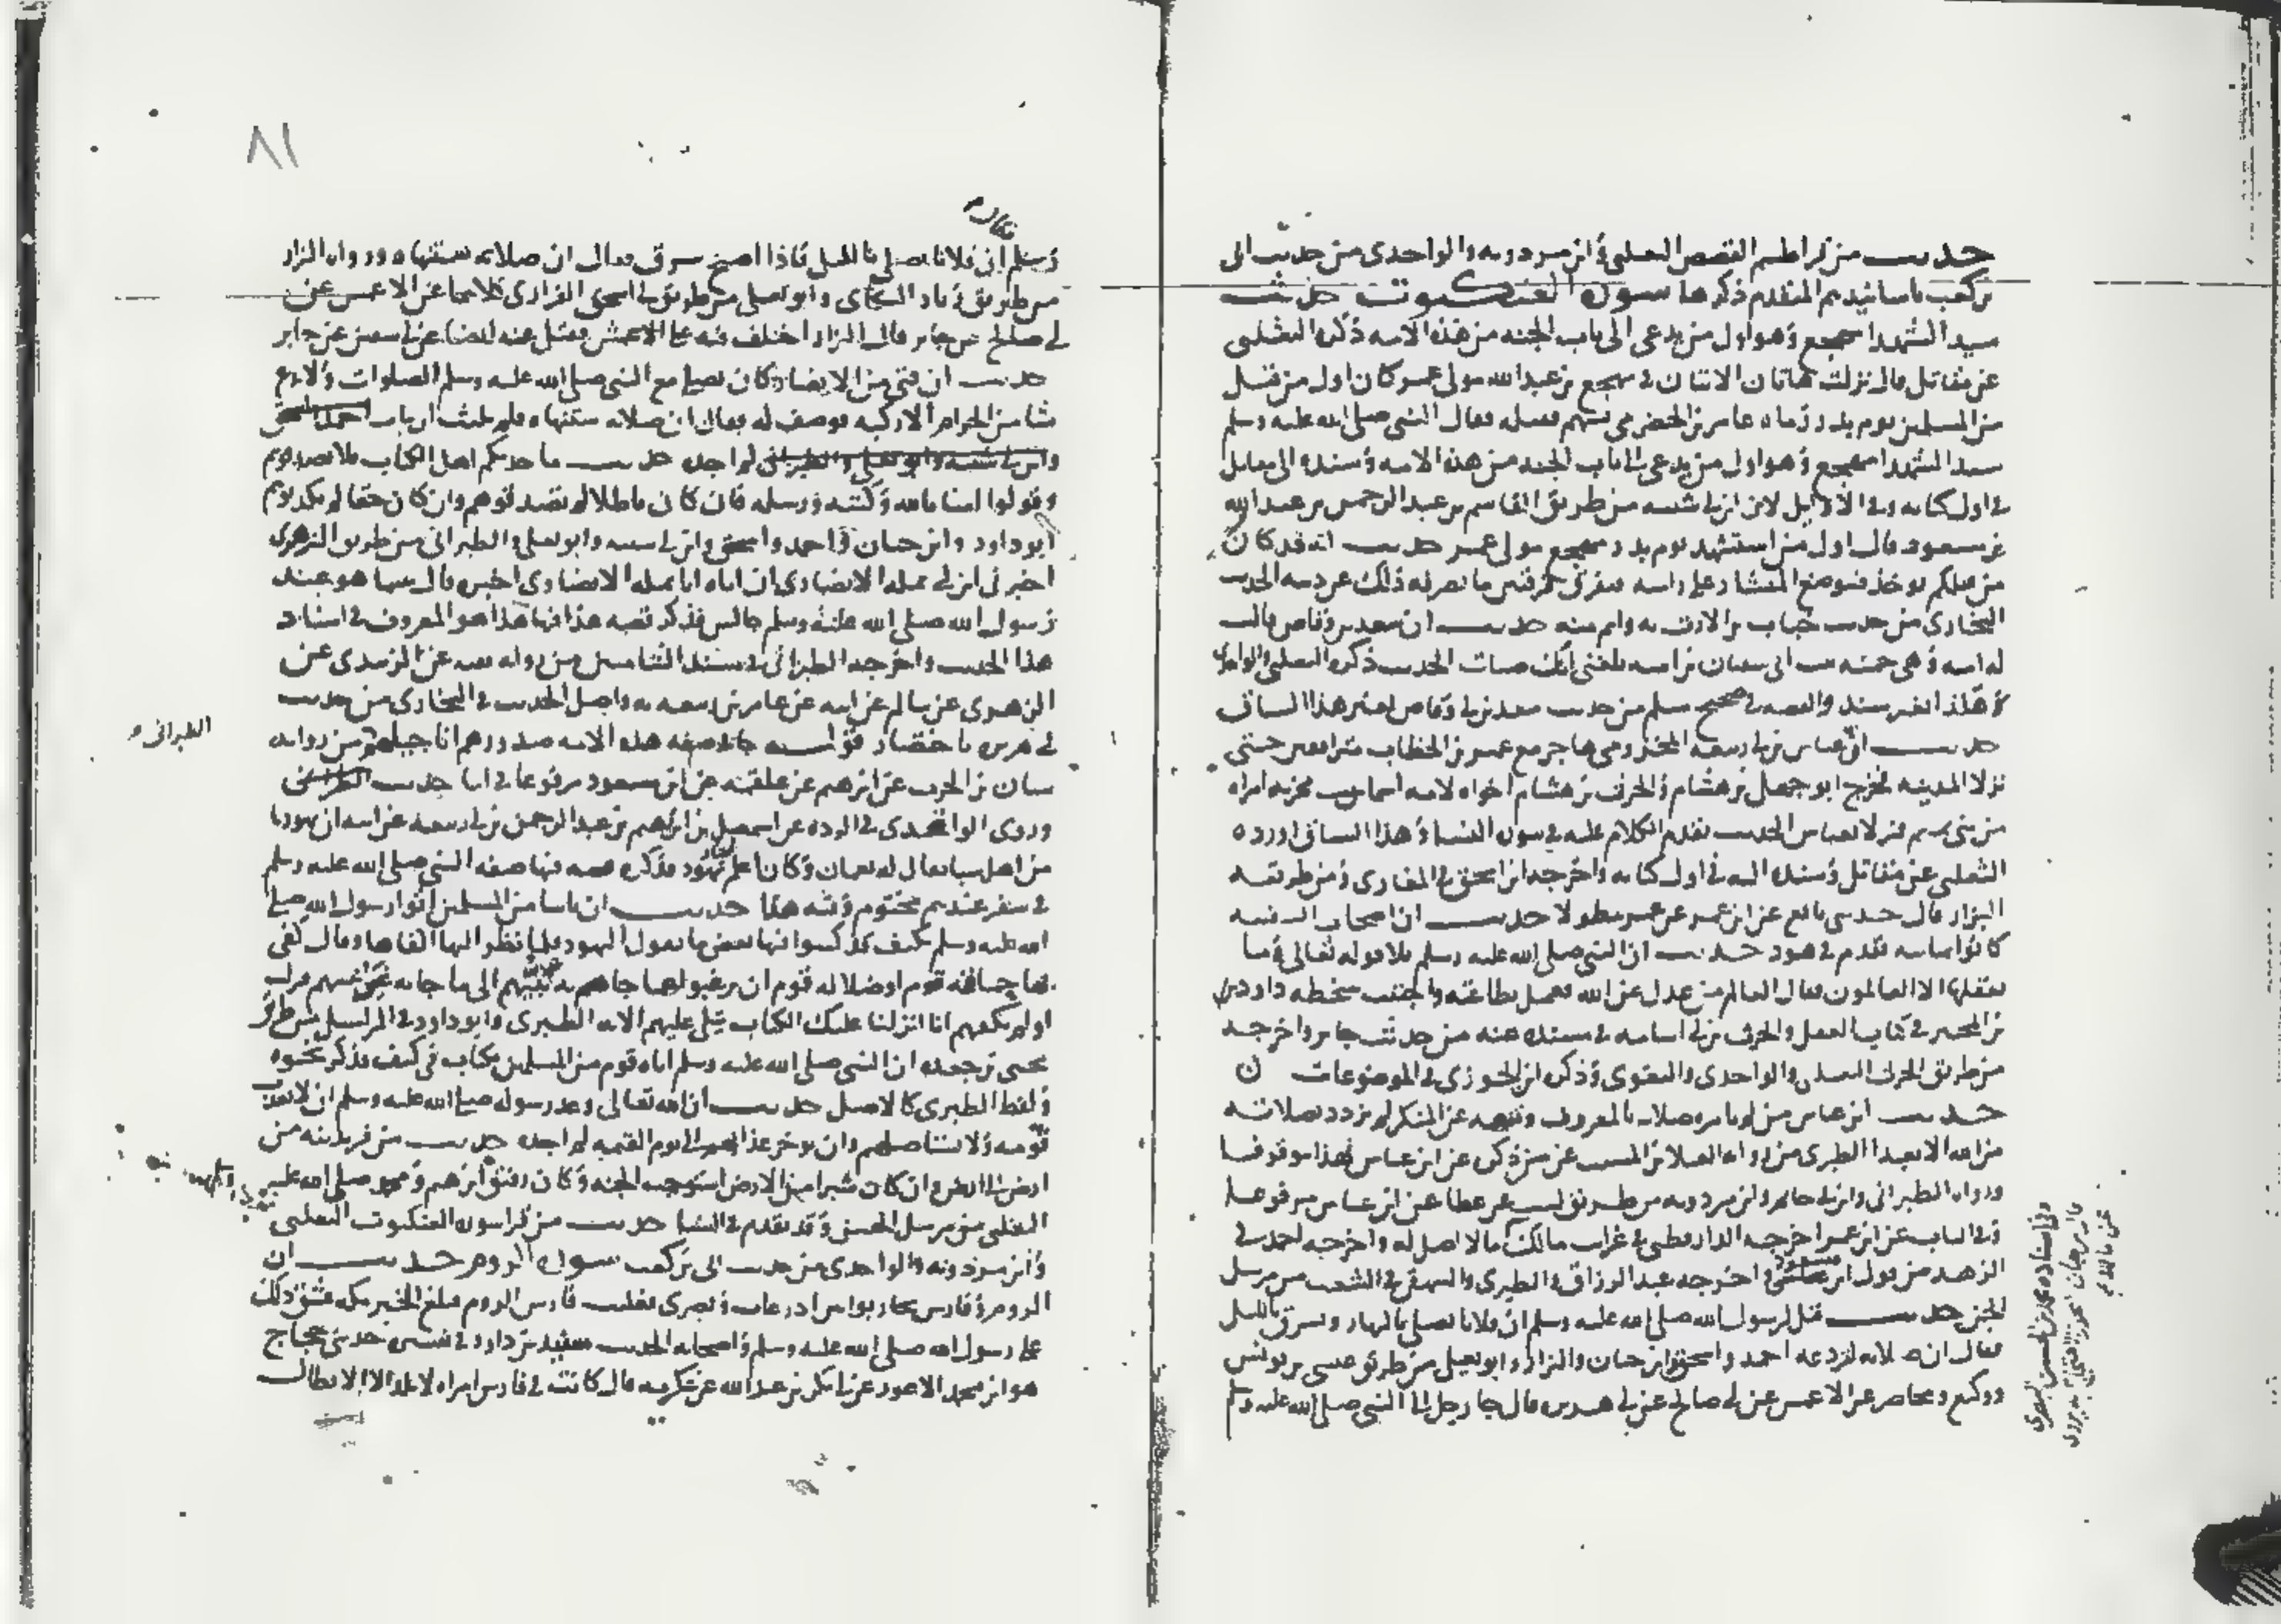 حديث من قرا طسم القصص الثعلبي وابن مردويه والواحدي من حديث ابي
بن كعب باسانيدهم المتقدم ذكرها سورة العنكبوت حديث
سيد الشهدا مهجع وهو اول من يدعى الى باب الجنه من هذه الامه ذكره الثعلبي
عن مقاتل قال نزلت هاتان الايتان في مهجع بن عبد الله مولى عمر كان اول من قتل
من المسلمين يوم بدر رماه عامر بن الحضرمي بسهم فقتله فقال النبي صلى الله عليه وسلم
سيد الشهدا مهجع وهو اول من يدعى الى باب الجنه من هذه الامه وسنده الى مقاتل
في اول كتابه وفي الاوايل لابن ابي شيبه من طريق القاسم بن عبد الرحمن بن عبد الله
بن مسعود قال اول من استشهد يوم بدر مهجع مولى عمر حديث انه قد كان
من قبلكم يوخذ فيوضع المنشار على راسه فيفرق فرقتين ما يصرفه ذلك عن دينه الحديث
البخاري من حديث خباب بن الارت به واتم منه حديث ان سعد بن وقاص قالت
له امه وهي حمنه بنت ابي سفيان بن اميه بلغني انك صبات الحديث ذكره الثعلبي والواحدي
هكذا بغير سند والقصه في صحيح مسلم من حديث سعد بن ابي وقاص بغير هذا السياق
حديث ان عياش بن ابي ربيعه المخزومي هاجر مع عمر بن الخطاب مترافقين حتى
نزلا المدينه فخرج ابو جهل بن هشام والحرث بن هشام اخواه لامه اسما بنت مخربه امراه
من بني تميم فنزلا بعياش الحديث تقدم الكلام عليه في سورة النسا وهذا السياق اورده
الثعلبي عن مقاتل وسنده اليه في اول كتابه واخرجه ابن اسحق في المغازي ومن طريقه
البزار قال حدثني نافع عن ابن عمر عن عمر مطولا حديث ان اصحاب السفينه
كانوا ثمانيه تقدم في هود حديث ان النبي صلى الله عليه وسلم تلا قوله تعالى وما
يعقلها الا العالمون فقال العالم من عقل عن الله فعمل بطاعته واجتنب سخطه داود
بن المحبر في كتاب العقل والحرث بن ابي اسامه في مسنده عنه من حديث جابر واخرجه
من طريق الحرث الثعلبي والواحدي والبغوي وذكره ابن الجوزي في الموضوعات
حديث ابن عباس من لم تامره صلاته بالمعروف وتنهه عن المنكر لم يزدد بصلاته
من الله الا بعدا الطبري من رواية العلا بن المسيب عن من ذكره عن ابن عباس هذا موقوفا
ورواه الطبراني وابن ابي حاتم وابن مردويه من طريق ليث عن عطا عن ابن عباس مرفوعا
وفي الباب عن ابن عمر اخرجه الدارقطني في غرايب مالك وقال لا اصل له واخرجه احمد في
الزهد من قول ابن مسعود واخرجه عبد الرزاق والطبري والبيهقي في الشعب من مرسل
الحسن حديث قيل لرسول الله صلى الله عليه وسلم ان فلانا يصلي بالنهار ويسرق بالليل
فقال ان صلاته لتردعه احمد واسحق وابن حبان والبزار وابو يعلى من طريق عيسى بن يونس
ووكيع ومحاضر عن الاعمش عن ابي صالح عن ابي هريره قال جا رجل الى النبي صلى الله عليه وسلم
وفي اسناده محمد بن الحسن البصري
عن مالك
٨١
وسلم ان فلانا يصلي بالليل فاذا اصبح سرق فقال ان صلاته ستنهاه ورواه البزار
من طريق زياد البكاي وابو يعلى من طريق ابي اسحق الفزاري كلاهما عن الاعمش عن
ابي صالح عن جابر قال البزار اختلف فيه على الاعمش فقيل عنه ايضا عن ابي سفين عن جابر
حديث ان فتى من الانصار كان يصلي مع النبي صلى الله عليه وسلم الصلوات ولا يدع
شيا من الحرام الا ركبه فوصف له فقال ان صلاته ستنهاه فلم يلبث ان تاب
لم اجده حديث ما حدثكم اهل الكتاب فلا تصدقوهم
وقولوا امنا بالله وكتبه ورسله فان كان باطلا لم تصدقوهم وان كان حقا لم تكذبوهم
ابو داود وابن حبان واحمد واسحق وابن ابي شيبه وابو يعلى والطبراني من طريق الزهري
اخبرني ابن ابي نمله الانصاري ان اباه ابا نمله الانصاري اخبره قال بينما هو عند
رسول الله صلى الله عليه وسلم جالس فذكر قصه هذا فيها هذا هو المعروف في اسناد
هذا الحديث واخرجه الطبراني في مسند الشاميين من رواية بقيه عن الزبيدي عن
الزهري عن سالم عن ابيه عن عامر بن ربيعه به واصل الحديث في البخاري من حديث
ابي هريره باختصار قوله جا في صفه هذه الامه صدورهم اناجيلهم من رواية
الطبراني
سنان بن الحرث عن ابرهيم عن علقمه عن ابن مسعود مرفوعا في اثنا حديث
وروى الواقدي في الرده عن اسمعيل بن ابرهيم بن عبد الرحمن بن ابي ربيعه عن ابيه ان يهوديا
من اهل سبا يقال له نعمان وكان اعلم يهود فذكره قصه فيها صفه النبي صلى الله عليه وسلم
في سفر عندهم مختوم وفيه هذا حديث ان ناسا من المسلمين اتوا رسول الله صلى
الله عليه وسلم بكتف قد كتبوا فيها بعض ما يقول اليهود فلما نظر اليها القاها وقال كفى
بها حماقة قوم او ضلاله قوم ان يرغبوا عما جاهم به نبيهم الى ما جا به غير نبيهم فنزلت
اولم يكفهم انا انزلنا عليك الكتاب يتلى عليهم الايه الطبري وابو داود في المراسيل من طريق
يحيى بن جعده ان النبي صلى الله عليه وسلم اتاه قوم من المسلمين بكتاب في كتف فذكر نحوه
ولفظ الطبري كالاصل حديث ان الله تعالى وعد رسوله صلى الله عليه وسلم ان لا يعذب
قومه ولا يستاصلهم وان يوخر عذابهم الى يوم القيمه لم اجده حديث من فر بدينه من
ارض الى ارض وان كان شبرا من الارض استوجب الجنه وكان رفيق ابرهيم ومحمد صلى الله عليهما
الثعلبي من مرسل الحسن وقد تقدم في النسا حديث من قرا سورة العنكبوت الثعلبي
وابن مردويه والواحدي من حديث ابي بن كعب سورة الروم حديث ان
الروم وفارس تحاربوا بين اذرعات وبصرى فغلبت فارس الروم فبلغ الخبر مكه فشق ذلك
على رسول الله صلى الله عليه وسلم واصحابه الحديث سنيد بن داود في تفسيره حدثني حجاج
هو ابن محمد الاعور عن ابي بكر بن عبد الله عن عكرمه قال كانت في فارس امراه لا تلد الا الابطال